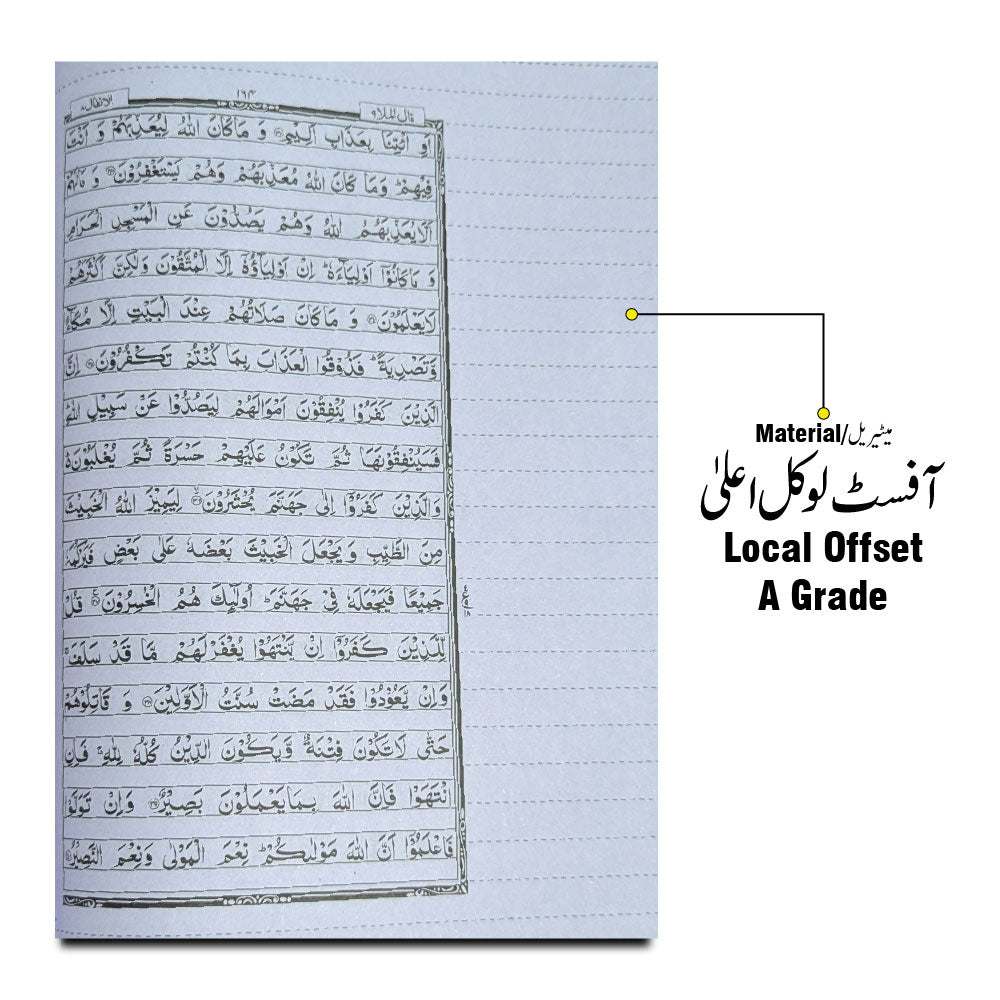 الانفال ۸
۱۶۴
قال الملا ۹
اَوِ ائْتِنَا بِعَذَابٍ اَلِيْمٍ۝۳۲ وَ مَا كَانَ اللّٰهُ لِيُعَذِّبَهُمْ وَ اَنْتَ
فِيْهِمْ ؕ وَمَا كَانَ اللّٰهُ مُعَذِّبَهُمْ وَهُمْ يَسْتَغْفِرُوْنَ۝۳۳ وَ مَا لَهُمْ
اَلَّا يُعَذِّبَهُمُ اللّٰهُ وَهُمْ يَصُدُّوْنَ عَنِ الْمَسْجِدِ الْحَرَامِ
وَ مَا كَانُوْۤا اَوْلِيَآءَهٗ ؕ اِنْ اَوْلِيَآؤُهٗۤ اِلَّا الْمُتَّقُوْنَ وَلٰكِنَّ اَكْثَرَهُمْ
لَا يَعْلَمُوْنَ۝۳۴ وَ مَا كَانَ صَلَاتُهُمْ عِنْدَ الْبَيْتِ اِلَّا مُكَآءً
وَّتَصْدِيَةً ؕ فَذُوْقُوا الْعَذَابَ بِمَا كُنْتُمْ تَكْفُرُوْنَ۝۳۵ اِنَّ
الَّذِيْنَ كَفَرُوْا يُنْفِقُوْنَ اَمْوَالَهُمْ لِيَصُدُّوْا عَنْ سَبِيْلِ اللّٰهِ ؕ
فَسَيُنْفِقُوْنَهَا ثُمَّ تَكُوْنُ عَلَيْهِمْ حَسْرَةً ثُمَّ يُغْلَبُوْنَ ؕ
وَالَّذِيْنَ كَفَرُوْۤا اِلٰى جَهَنَّمَ يُحْشَرُوْنَ۝۳۶ لِيَمِيْزَ اللّٰهُ الْخَبِيْثَ
مِنَ الطَّيِّبِ وَيَجْعَلَ الْخَبِيْثَ بَعْضَهٗ عَلٰى بَعْضٍ فَيَرْكُمَهٗ
جَمِيْعًا فَيَجْعَلَهٗ فِيْ جَهَنَّمَ ؕ اُولٰٓئِكَ هُمُ الْخٰسِرُوْنَ۝۳۷ قُلْ
لِّلَّذِيْنَ كَفَرُوْۤا اِنْ يَّنْتَهُوْا يُغْفَرْ لَهُمْ مَّا قَدْ سَلَفَ ۚ
وَاِنْ يَّعُوْدُوْا فَقَدْ مَضَتْ سُنَّتُ الْاَوَّلِيْنَ۝۳۸ وَ قَاتِلُوْهُمْ
حَتّٰى لَا تَكُوْنَ فِتْنَةٌ وَّيَكُوْنَ الدِّيْنُ كُلُّهٗ لِلّٰهِ ۚ فَاِنِ
انْتَهَوْا فَاِنَّ اللّٰهَ بِمَا يَعْمَلُوْنَ بَصِيْرٌ۝۳۹ وَاِنْ تَوَلَّوْا
فَاعْلَمُوْۤا اَنَّ اللّٰهَ مَوْلٰىكُمْ ؕ نِعْمَ الْمَوْلٰى وَنِعْمَ النَّصِيْرُ۝۴۰
Material/میٹیریل
آفسٹ لوکل اعلیٰ
Local Offset
A Grade